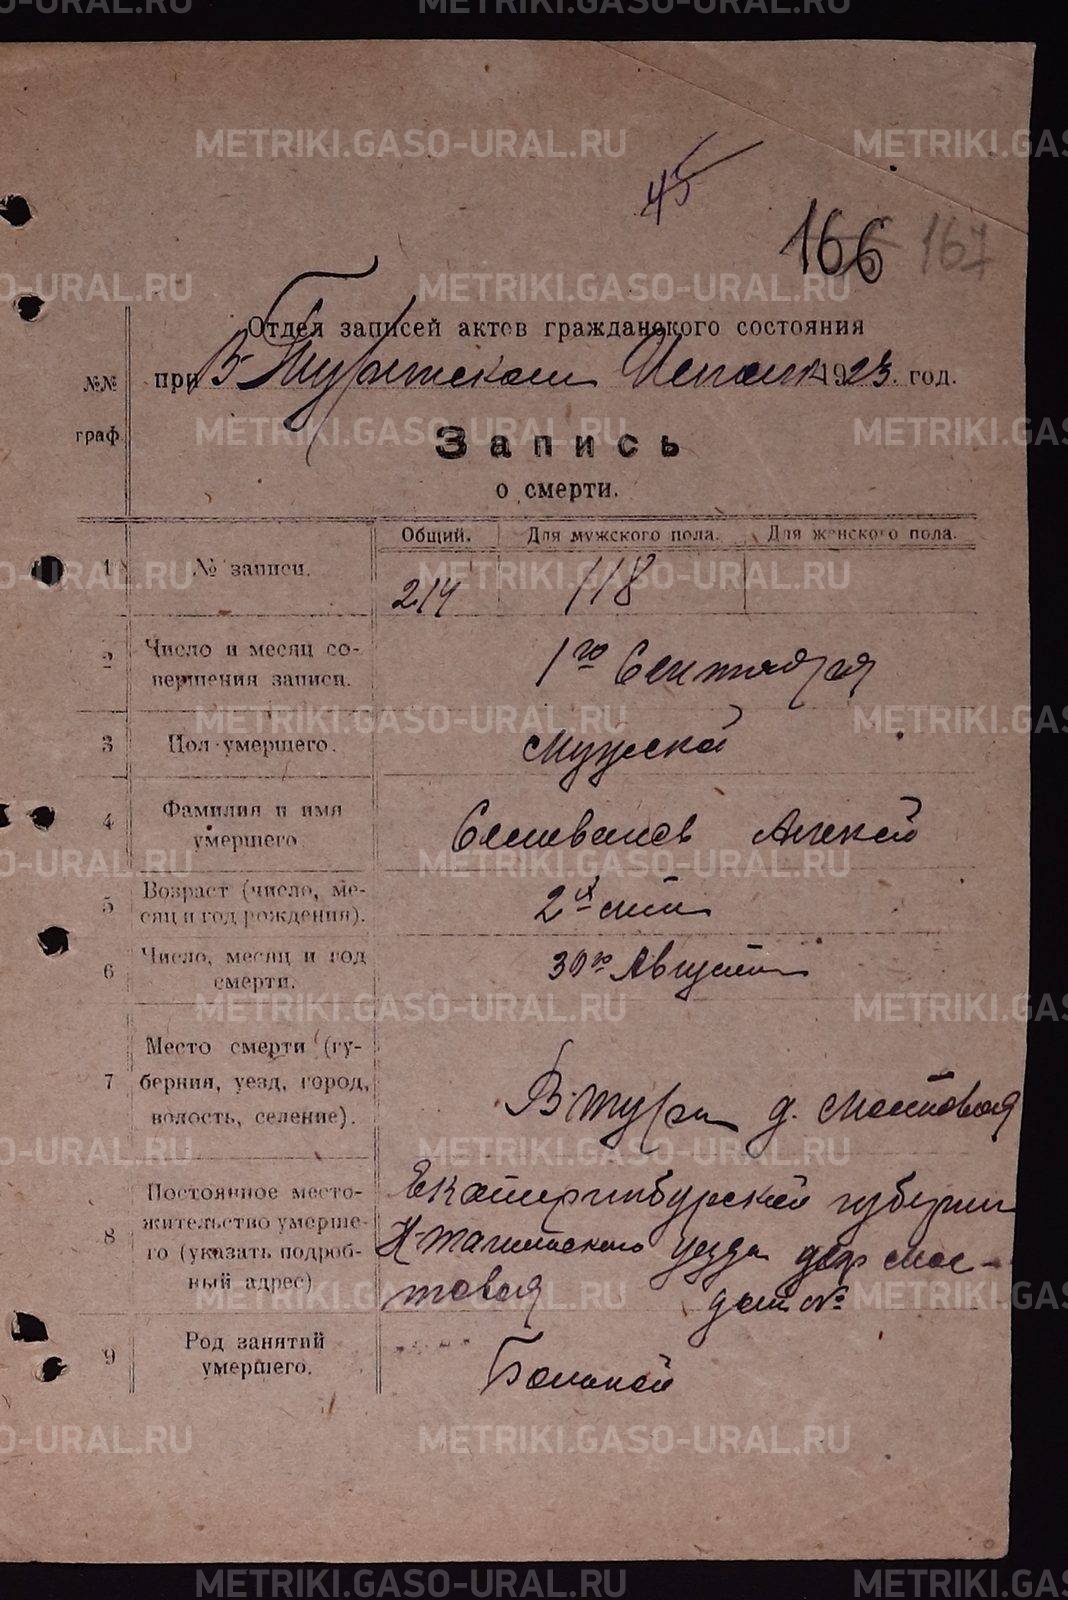 45
166 167
Отдел записей актов гражданского состояния
при В-Туринском Исполк 1923. год.
№№
граф.
Запись
о смерти.
Общий. Для мужского пола. Для женского пола.
1 № записи. 214 118
2 Число и месяц со-
вершения записи. 1го Сентября
3 Пол умершего. Мужской
4 Фамилия и имя
умершего Селиванов Алексей
5 Возраст (число, ме-
сяц и год рождения). 2х лет
6 Число, месяц и год
смерти. 30го Августа
7 Место смерти (гу-
берния, уезд, город,
волость, селение). В-Тура д. Мостовая
8 Постоянное место-
жительство умерше-
го (указать подроб-
ный адрес) Екатеринбургской губернии
Н-Тагильского уезда дер Мос-
товая дом №
9 Род занятий
умершего. Больной
METRIKI.GASO-URAL.RU